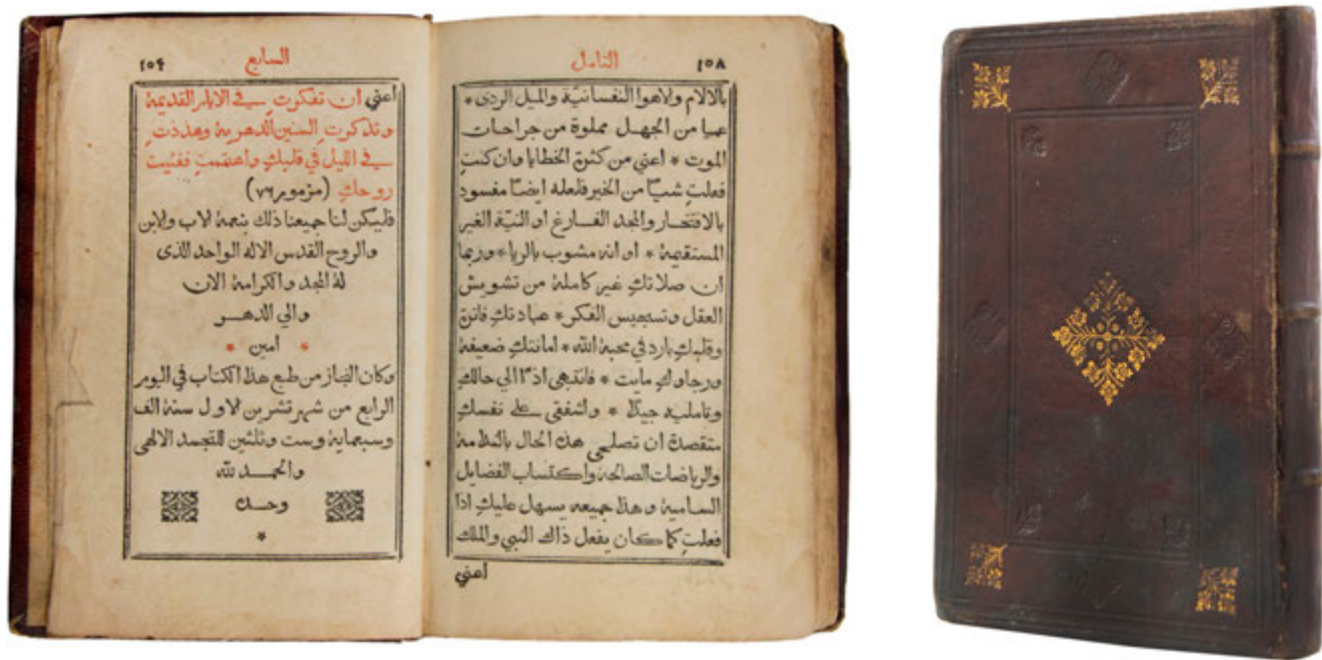 التامل
بالالام ولاهوا النفسانيّة والميل الردى *
عميا من الجهل مملوة من جراحات
الموت * اعني من كثرة الخطايا وان كنتِ
فعلتِ شيًّا من الخير فلعله ايضًا مفسود
بالافتخار والمجد الفارغ او النيّة الغير
المستقيمة * او انه مشوب بالريا * وربما
ان صلاتكِ غير كاملة من تشويش
العقل وتسجيس الفكر * عبادتكِ فاترة
وقلبكِ بارد في محبة الله * امانتكِ ضعيفة
ورجاوكِ مايت * فانتبهى اذًا الي حالكِ
وتامليه جيدًا * واشفقى على نفسكِ
متقصدة ان تصلحي هذه الحال بالندامة
والرياضات الصالحة واكتساب الفضايل
السامية وهذا جميعه يسهل عليكِ اذا
فعلتِ كما كان يفعل ذاك النبي والملك
اعني
السابع
اعني ان تفكرتِ في الايام القديمة
وتذكرتِ السنين الدهرية وهذذتِ
في الليل في قلبكِ واهتممتِ ففتيت
روحكِ (مزمور ٧٦)
فليكن لنا جميعنا ذلك بنعمة الاب ولابن
والروح القدس الاله الواحد الذى
لهُ المجد والكرامة الان
والي الدهر
* امين *
وكان النجاز من طبع هذا الكتاب في اليوم
الرابع من شهر تشرين لاول سنة الف
وسبعماية وست وثلثين للتجسد الالهى
والحمد لله
وحده
*